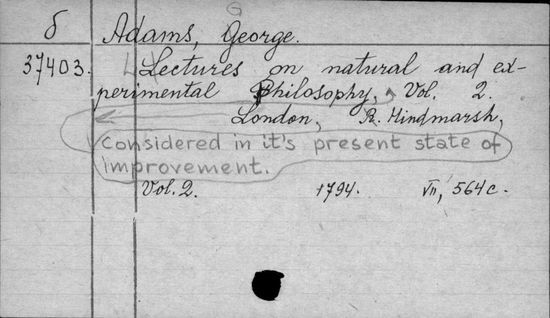 G
б Adams, George.
37403. Lectures on natural and ex-
perimental Philosophy, Vol. 2.
London, R. Hindmarsh,
Considered in it's present state of
improvement.
Vol. 2. 1794. VII, 564 c.